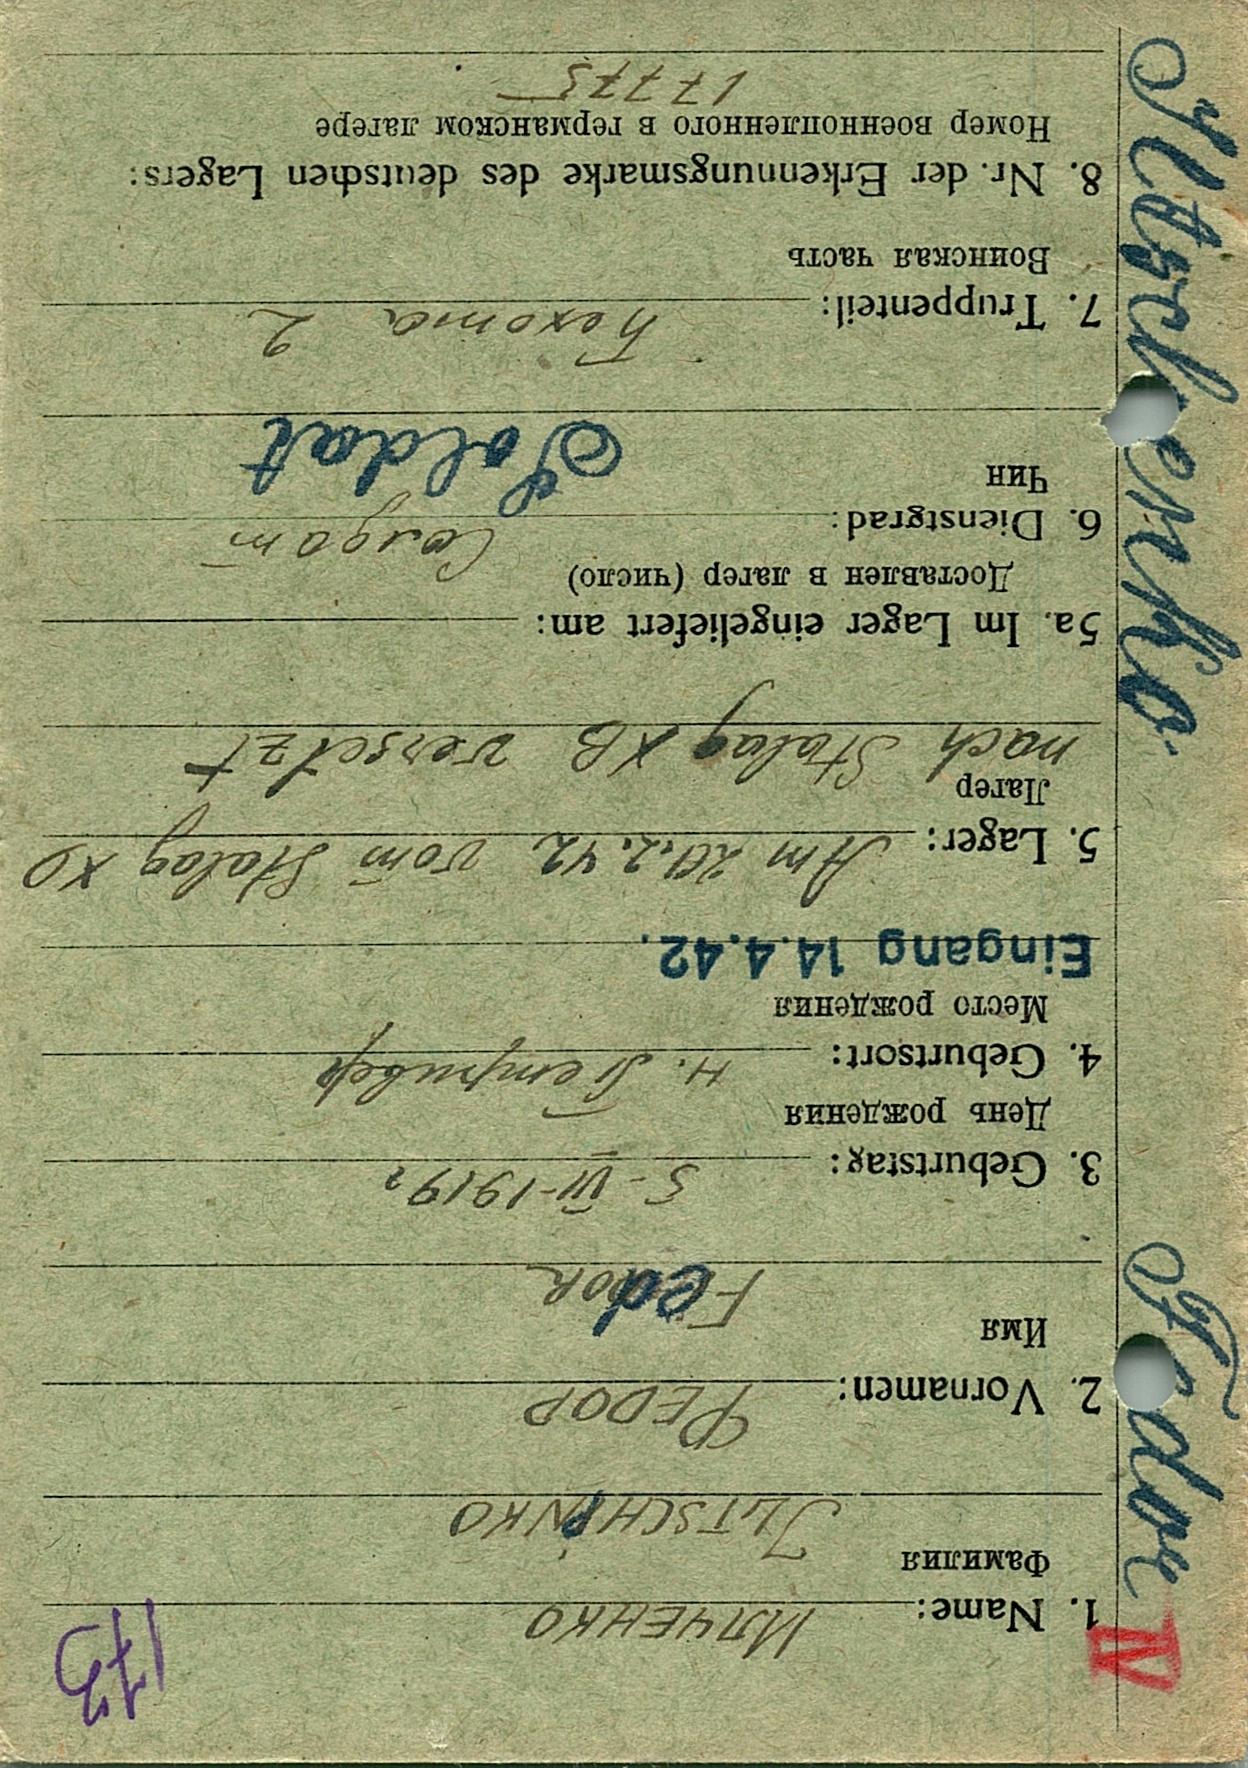 173
IV
1. Name: ИЛЧЕНКО
Фамилия
ILTSCHENKO
2. Vornamen: ФЕДОР
Имя
Fedor
3. Geburtstag: 5-VI-1919г
День рождения
4. Geburtsort: н.
Место рождения
Eingang 14.4.42.
5. Lager: Am 20.2.42 vom Stalag XD
Лагер
nach Stalag XB versetzt
5a. Im Lager eingeliefert am:
Доставлен в лагер (число)
6. Dienstgrad: Солдат
Чин
Soldat
7. Truppenteil: 2
Воинская часть
8. Nr. der Erkennungsmarke des deutschen Lagers:
Номер военнопленного в германском лагере
17775
Iltschenko Fedor